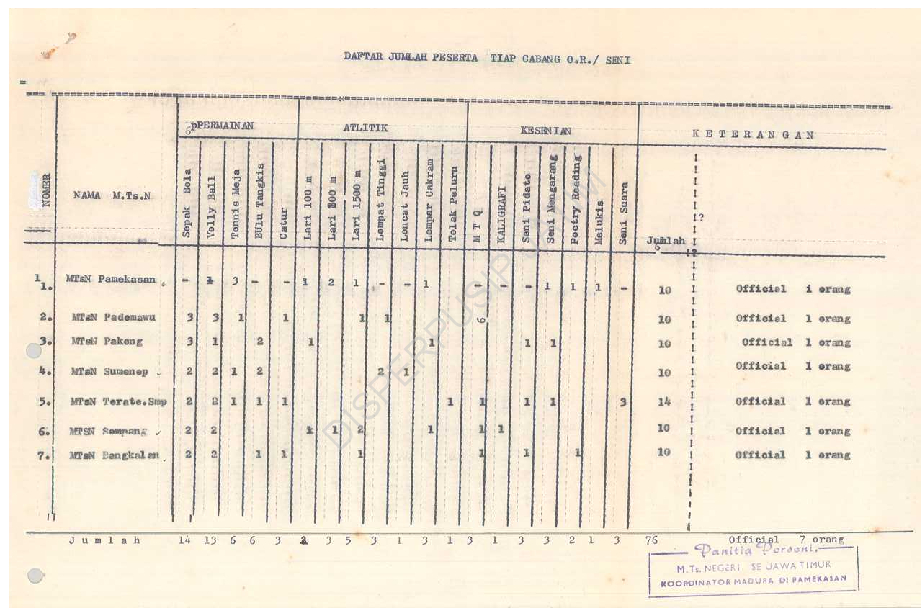 DAFTAR JUMLAH PESERTA TIAP CABANG O.R./ SENI
NOMER NAMA M.Ts.N PERMAINAN ATLITIK KESENIAN K E T E R A N G A N
Sepak Bola Volly Ball Tennis Meja BUlu Tangkis Catur Lari 100 m Lari 800 m Lari 1500 m Lompat Tinggi Loncat Jauh Lempar Cakram Tolak Peluru M T Q KALIGRAFI Seni Pidato Seni Mengarang Poetry Reading Melukis Seni Suara Jumlah
1. MTsN Pamekasan - 1 3 - - 1 2 1 - - 1 - - - 1 1 1 - 10 Official 1 orang
2. MTsN Pademawu 3 3 1 1 1 1 10 Official 1 orang
3. MTsN Pakong 3 1 2 1 1 1 1 10 Official 1 orang
4. MTsN Sumenep 2 2 1 2 2 1 10 Official 1 orang
5. MTsN Terate.Smp 2 2 1 1 1 1 1 1 1 3 14 Official 1 orang
6. MTSN Sampang 2 2 1 1 2 1 1 1 10 Official 1 orang
7. MTsN Bangkalan 2 2 1 1 1 1 1 1 10 Official 1 orang
J u m l a h 14 13 6 6 3 2 3 5 3 1 3 1 3 1 3 3 2 1 3 76 Official 7 orang
Panitia Porseni,
M.Ts. NEGERI SE JAWA TIMUR
KOORDINATOR MADURA DI PAMEKASAN